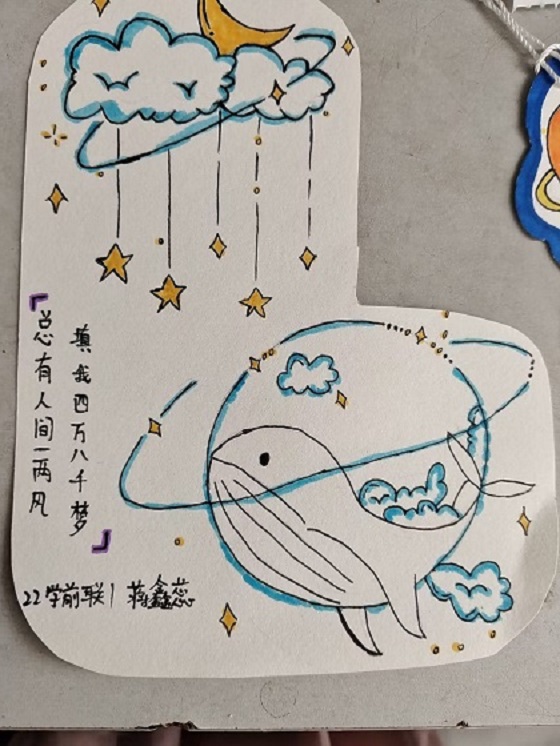 「总有人间一两风
填我四万八千梦」
22学前联1 蒋鑫蕊